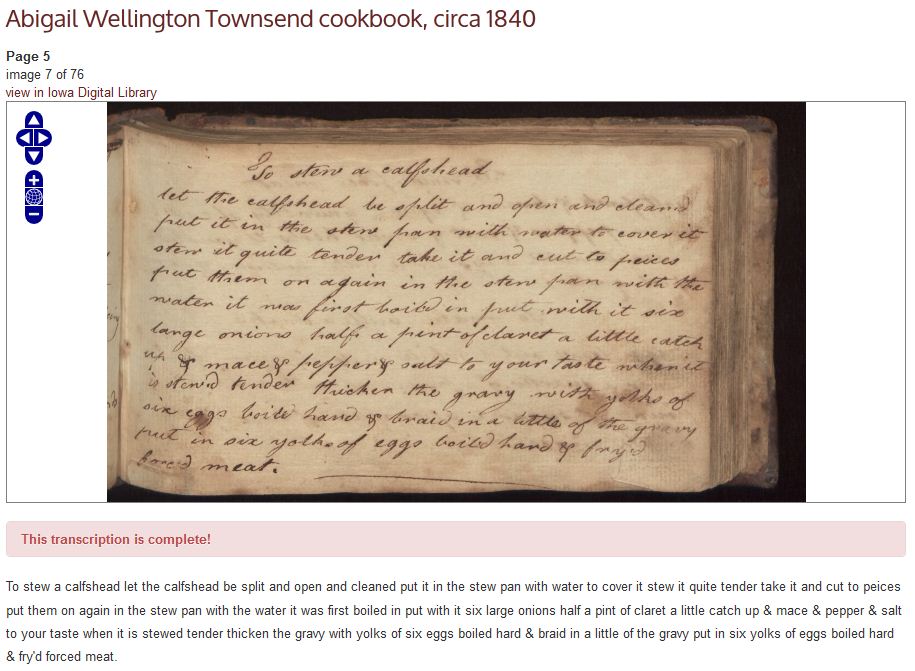 Abigail Wellington Townsend cookbook, circa 1840
Page 5
image 7 of 76
view in Iowa Digital Library
To stew a calfshead
let the calfshead be split and open and cleand
put it in the stew pan with water to cover it
stew it quite tender take it and cut to peices
put them on again in the stew pan with the
water it was first boild in put with it six
large onions half a pint of claret a little catch
up & mace & pepper & salt to your taste when it
is stew'd tender thicken the gravy with yolks of
six eggs boild hard & braid in a little of the gravy
put in six yolks of eggs boild hard & fry'd
forced meat.
This transcription is complete!
To stew a calfshead let the calfshead be split and open and cleaned put it in the stew pan with water to cover it stew it quite tender take it and cut to peices
put them on again in the stew pan with the water it was first boiled in put with it six large onions half a pint of claret a little catch up & mace & pepper & salt
to your taste when it is stewed tender thicken the gravy with yolks of six eggs boiled hard & braid in a little of the gravy put in six yolks of eggs boiled hard
& fry'd forced meat.